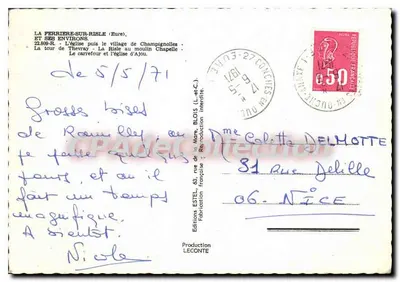 LA FERRIERE-SUR-RISLE (Eure),
ET SES ENVIRONS.
22.909-R. - L'église puis le village de Champagnolles -
La tour de Thevray - La Risle au moulin Chapelle
Le carrefour et l'église d'Ajou.
Le 5/5/71
Grosses bises
de Romilles où
je passe quelques
jours, et où il
fait un temps
magnifique.
A bientôt.
Nicole
Editions ESTEL, 63, rue de la Mare, BLOIS (L.-et-C.)
Fabrication française - Reproduction interdite.
Production
LECONTE
27 CONCHES EN OUCHE
EURE
1971
REPUBLIQUE FRANCAISE
0.50
Mme Colette DELMOTTE
31 rue Delille
06. NICE